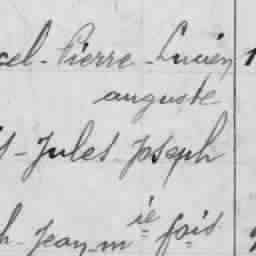 cel - Pierre - Lucien
auguste
Jules Joseph
h - Jean - m ie fois